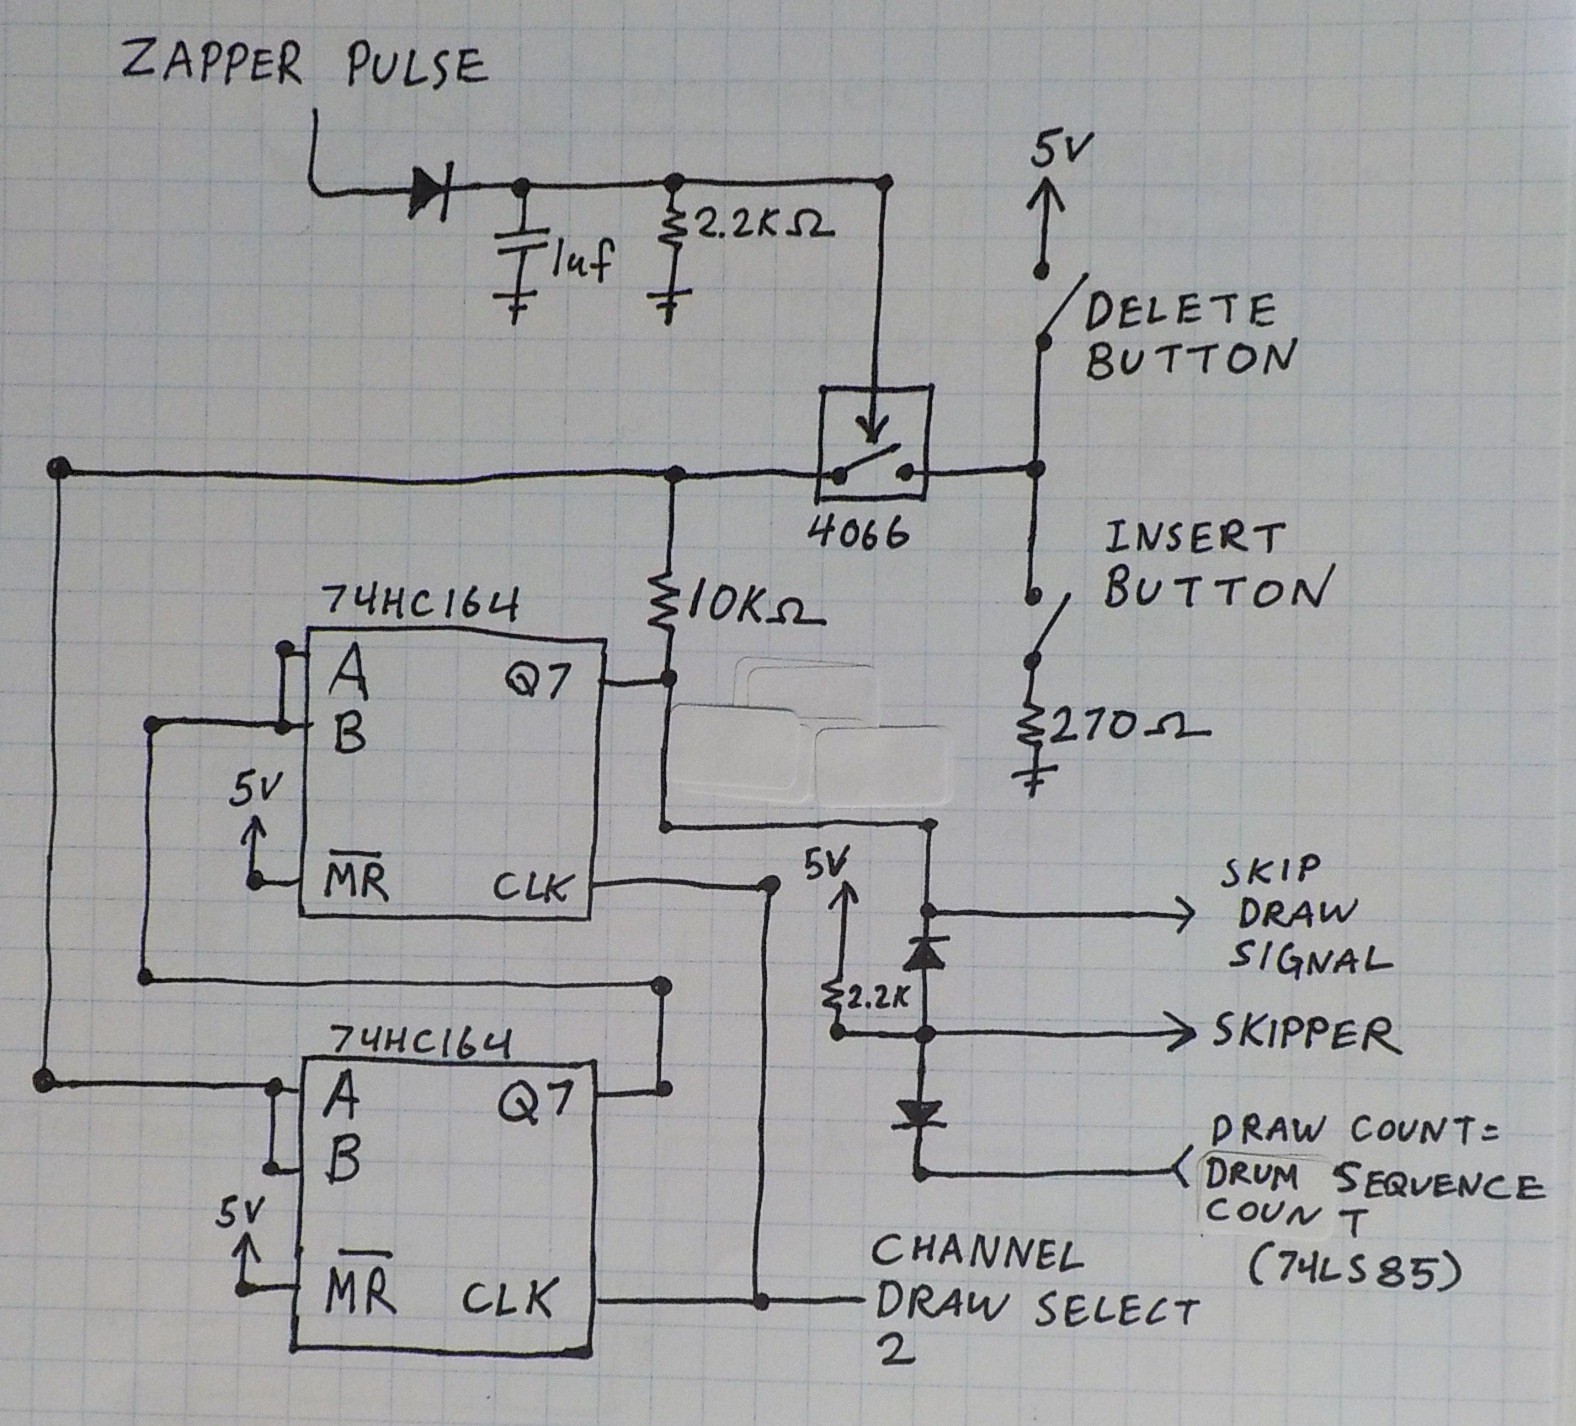 ZAPPER PULSE
5V
2.2KΩ
1uf
DELETE
BUTTON
4066
INSERT
BUTTON
74HC164
10KΩ
A
Q7
B
270Ω
5V
MR
CLK
5V
SKIP
DRAW
SIGNAL
2.2K
SKIPPER
74HC164
A
Q7
B
DRAW COUNT=
DRUM SEQUENCE
COUNT
(74LS85)
5V
MR
CLK
CHANNEL
DRAW SELECT
2